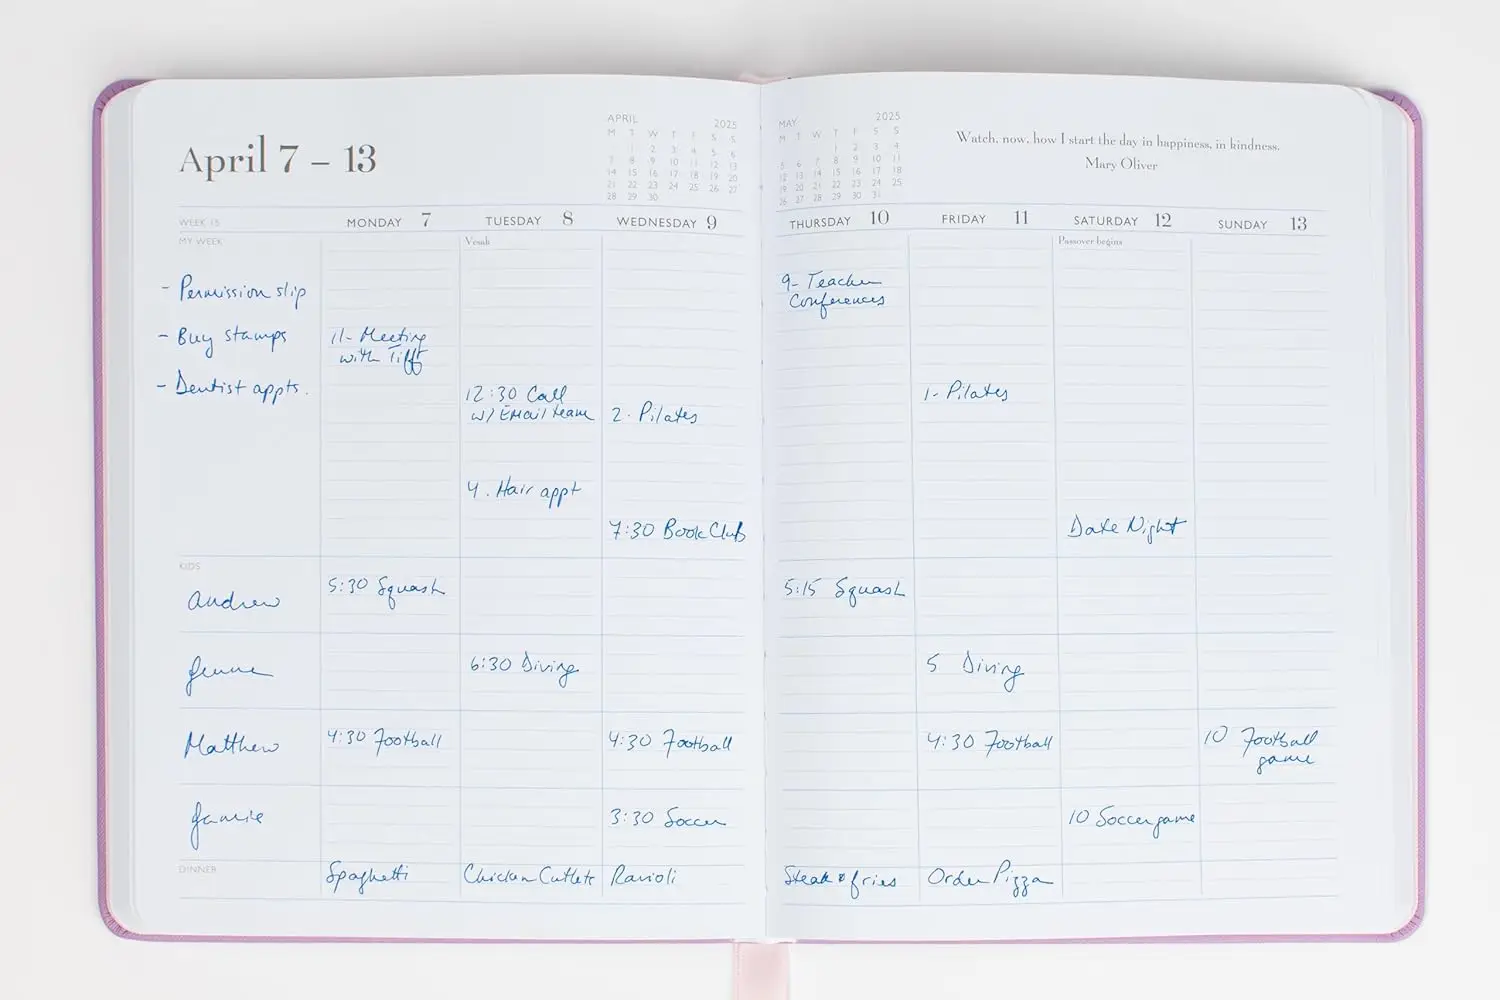 April 7 – 13
APRIL 2025
M T W T F S S
1 2 3 4 5 6
7 8 9 10 11 12 13
14 15 16 17 18 19 20
21 22 23 24 25 26 27
28 29 30
MAY 2025
M T W T F S S
1 2 3 4
5 6 7 8 9 10 11
12 13 14 15 16 17 18
19 20 21 22 23 24 25
26 27 28 29 30 31
Watch, now, how I start the day in happiness, in kindness.
Mary Oliver
WEEK 15
MONDAY 7
TUESDAY 8
WEDNESDAY 9
THURSDAY 10
FRIDAY 11
SATURDAY 12
SUNDAY 13
MY WEEK
Passover begins
- Permission slip
- Buy stamps
- Dentist appts.
11- Meeting
with Tifft
12:30 Call
w/ Email team
4. Hair appt
2. Pilates
7:30 Book Club
9- Teacher
Conferences
1- Pilates
Date Night
KIDS
Andrew
5:30 Squash
5:15 Squash
6:30 Diving
5 Diving
Matthew
4:30 Football
4:30 Football
4:30 Football
10 Football
game
Jamie
3:30 Soccer
10 Soccer game
DINNER
Spaghetti
Chicken Cutlets
Ravioli
Steak & fries
Order Pizza